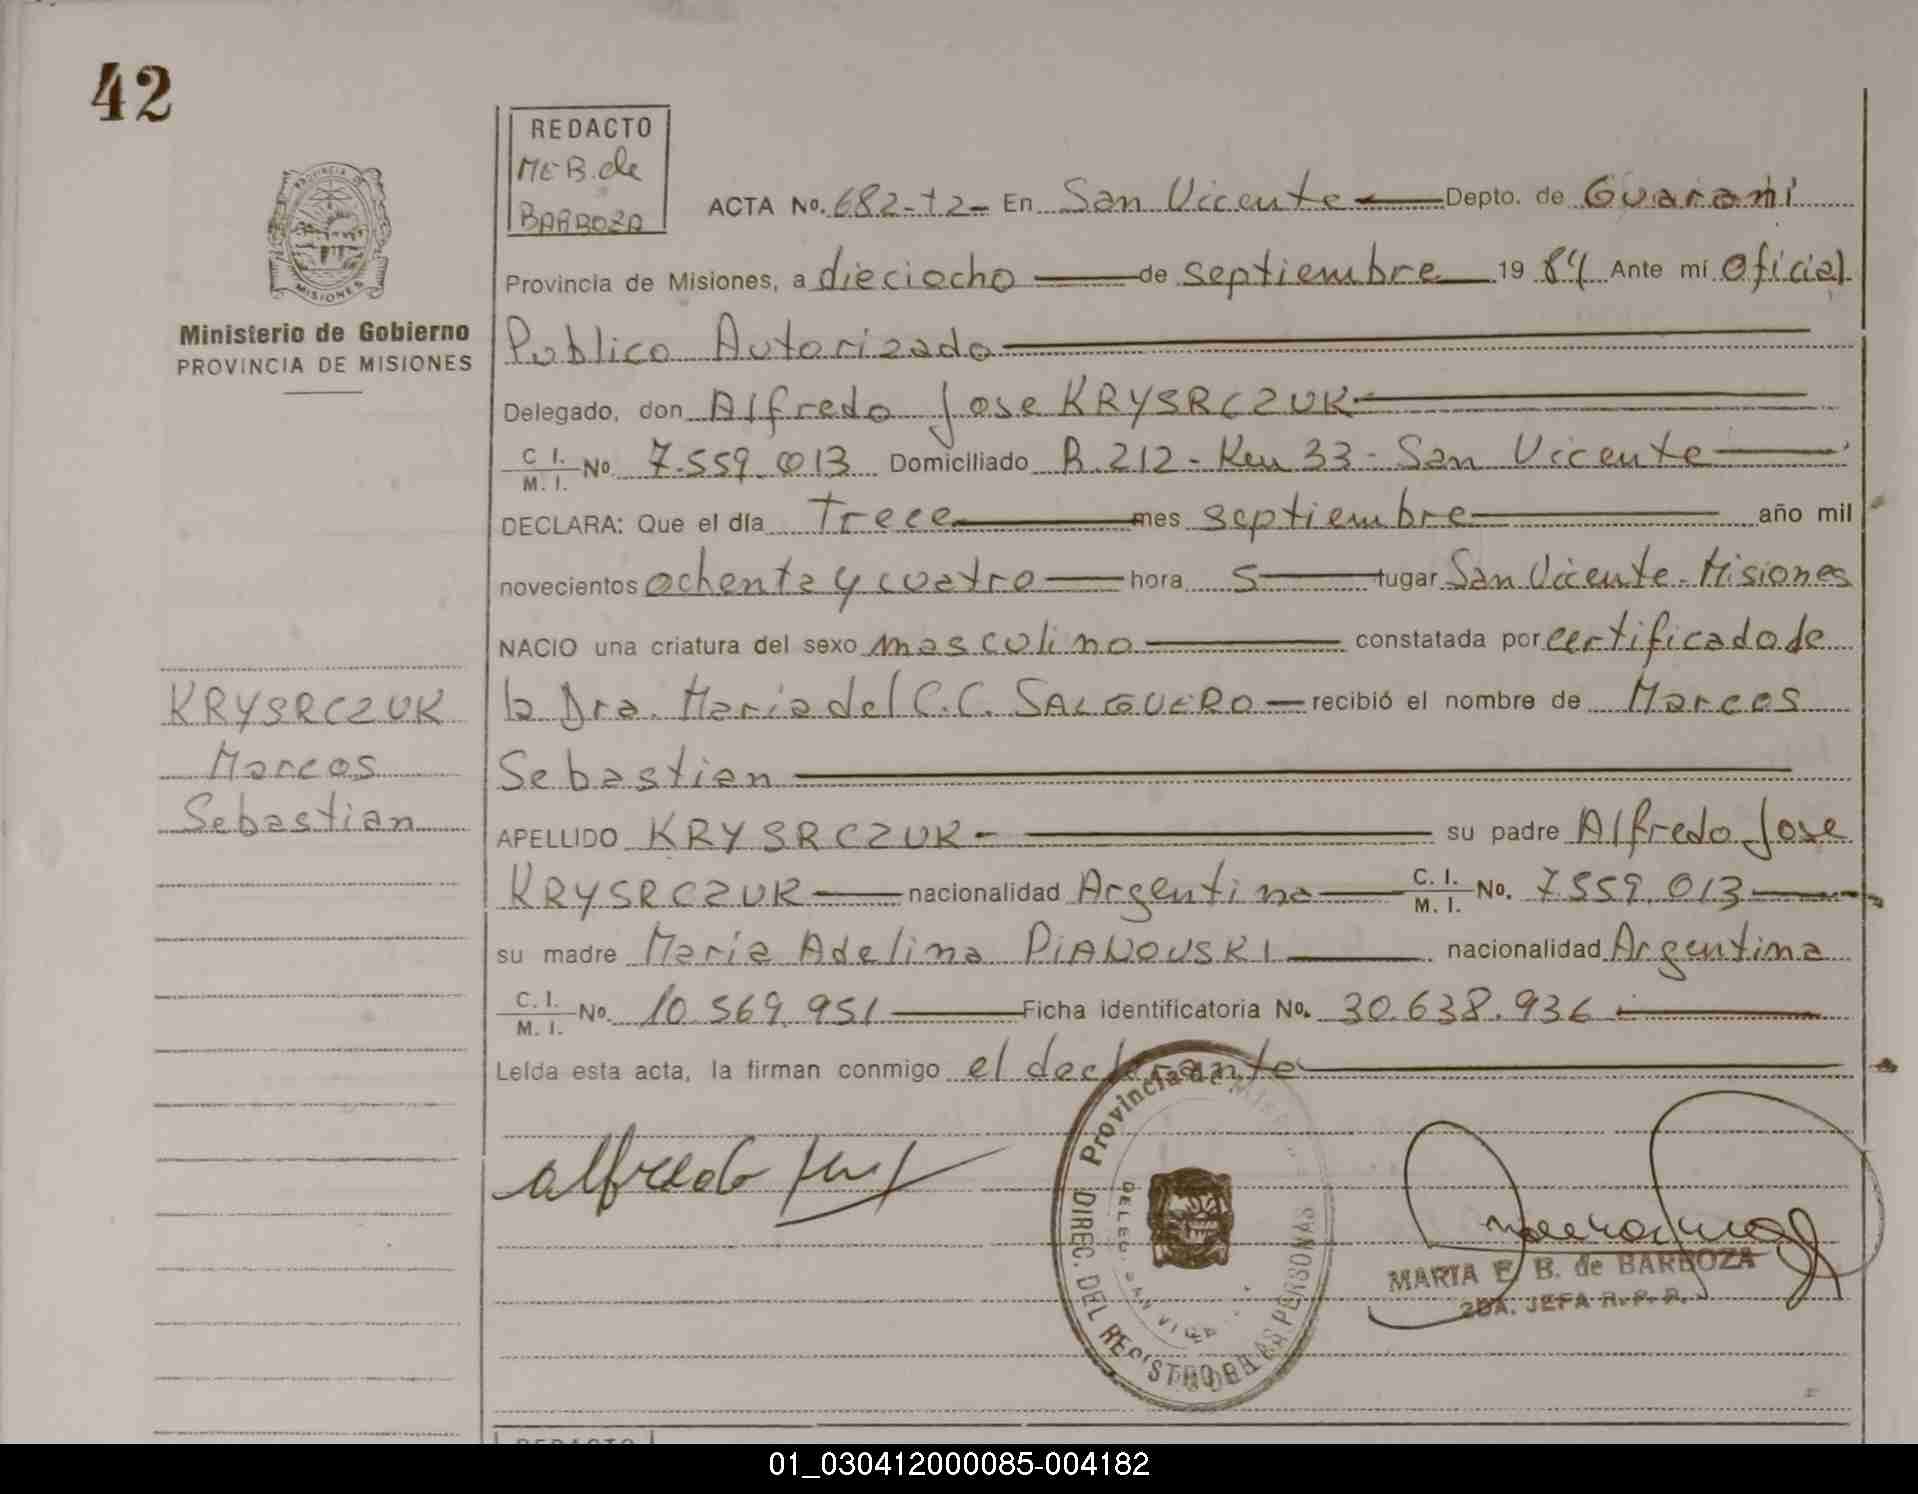 42
REDACTO
MEB. de
BARBOZA
PROVINCIA DE
MISIONES
Ministerio de Gobierno
PROVINCIA DE MISIONES
ACTA No. 682-t2- En San Vicente Depto. de Guarani
Provincia de Misiones, a dieciocho de septiembre 19 84 Ante mí Oficial
Publico Autorizado
Delegado, don Alfredo Jose KRYSRCZUK
C I. M. I. No. 7.559.013 Domiciliado R.212 - Km 33 - San Vicente
DECLARA: Que el día Trece mes septiembre año mil
novecientos ochenta y cuatro hora 5 lugar San Vicente - Misiones
NACIO una criatura del sexo masculino constatada por certificado de
la Dra. Maria del C.C. SALGUERO recibió el nombre de Marcos
Sebastian
APELLIDO KRYSRCZUK - su padre Alfredo Jose
KRYSRCZUK nacionalidad Argentina C. I. M. I. No. 7.559.013
su madre Maria Adelina PIANOUSKI nacionalidad Argentina
C. I. M. I. No. 10.569.951 Ficha identificatoria No. 30.638.936
Leída esta acta, la firman conmigo el declarante
KRYSRCZUK
Marcos
Sebastian
alfredo
Provincia de Misiones
DIREC. DEL REGISTRO DE LAS PERSONAS
MARIA E. B. de BARBOZA
2DA. JEFA R. P. P.
REDACTO
01_030412000085-004182